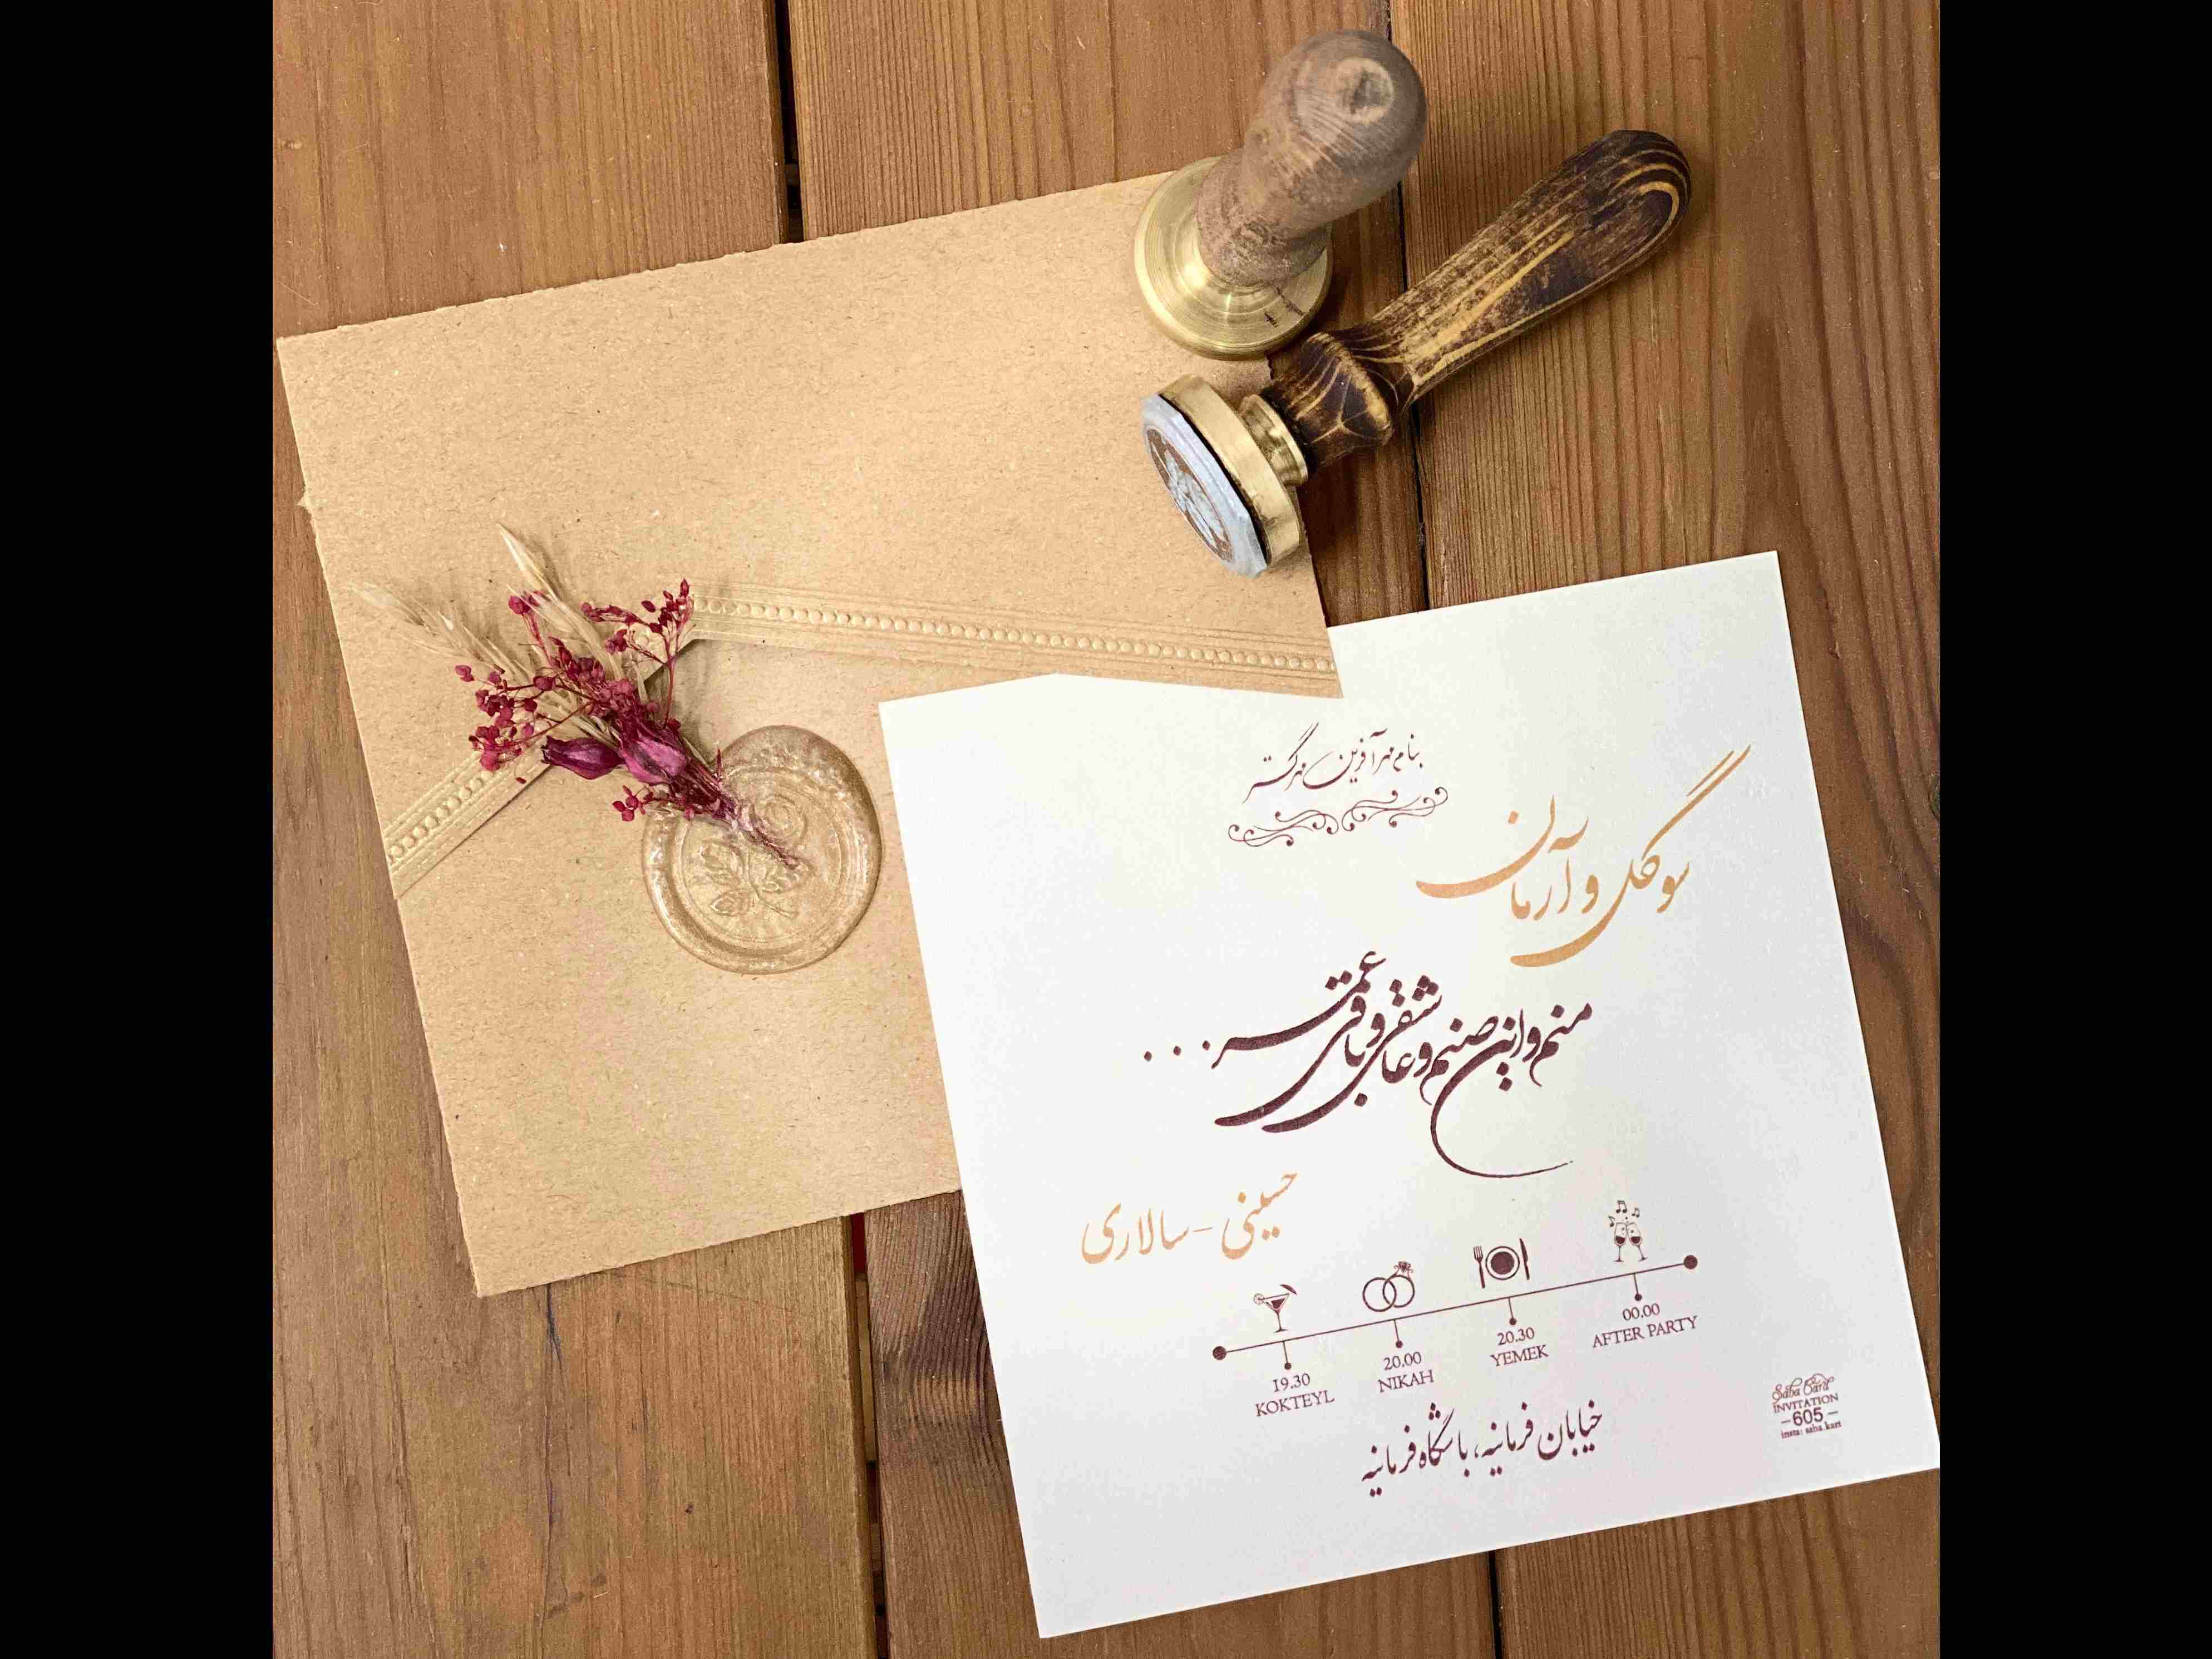 بنام مهرآفرین مهرگستر
سوگل و آرمان
منم و این صنم و عاشقی و باقی عمر...
حسینی - سالاری
19.30
KOKTEYL
20.00
NIKAH
20.30
YEMEK
00.00
AFTER PARTY
خیابان فرمانیه، باشگاه فرمانیه
Saba Card
INVITATION
-605-
insta: saba.kart